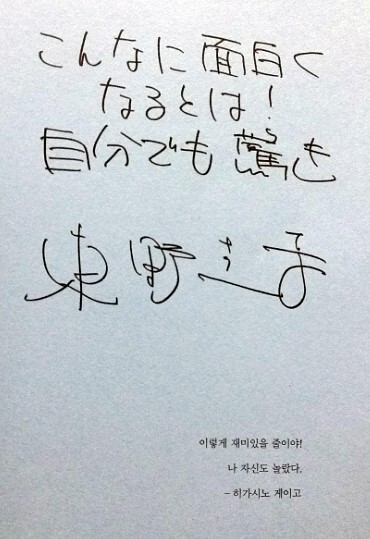 こんなに面白く
なるとは!
自分でも驚き
東野圭吾
이렇게 재미있을 줄이야!
나 자신도 놀랐다.
– 히가시노 게이고